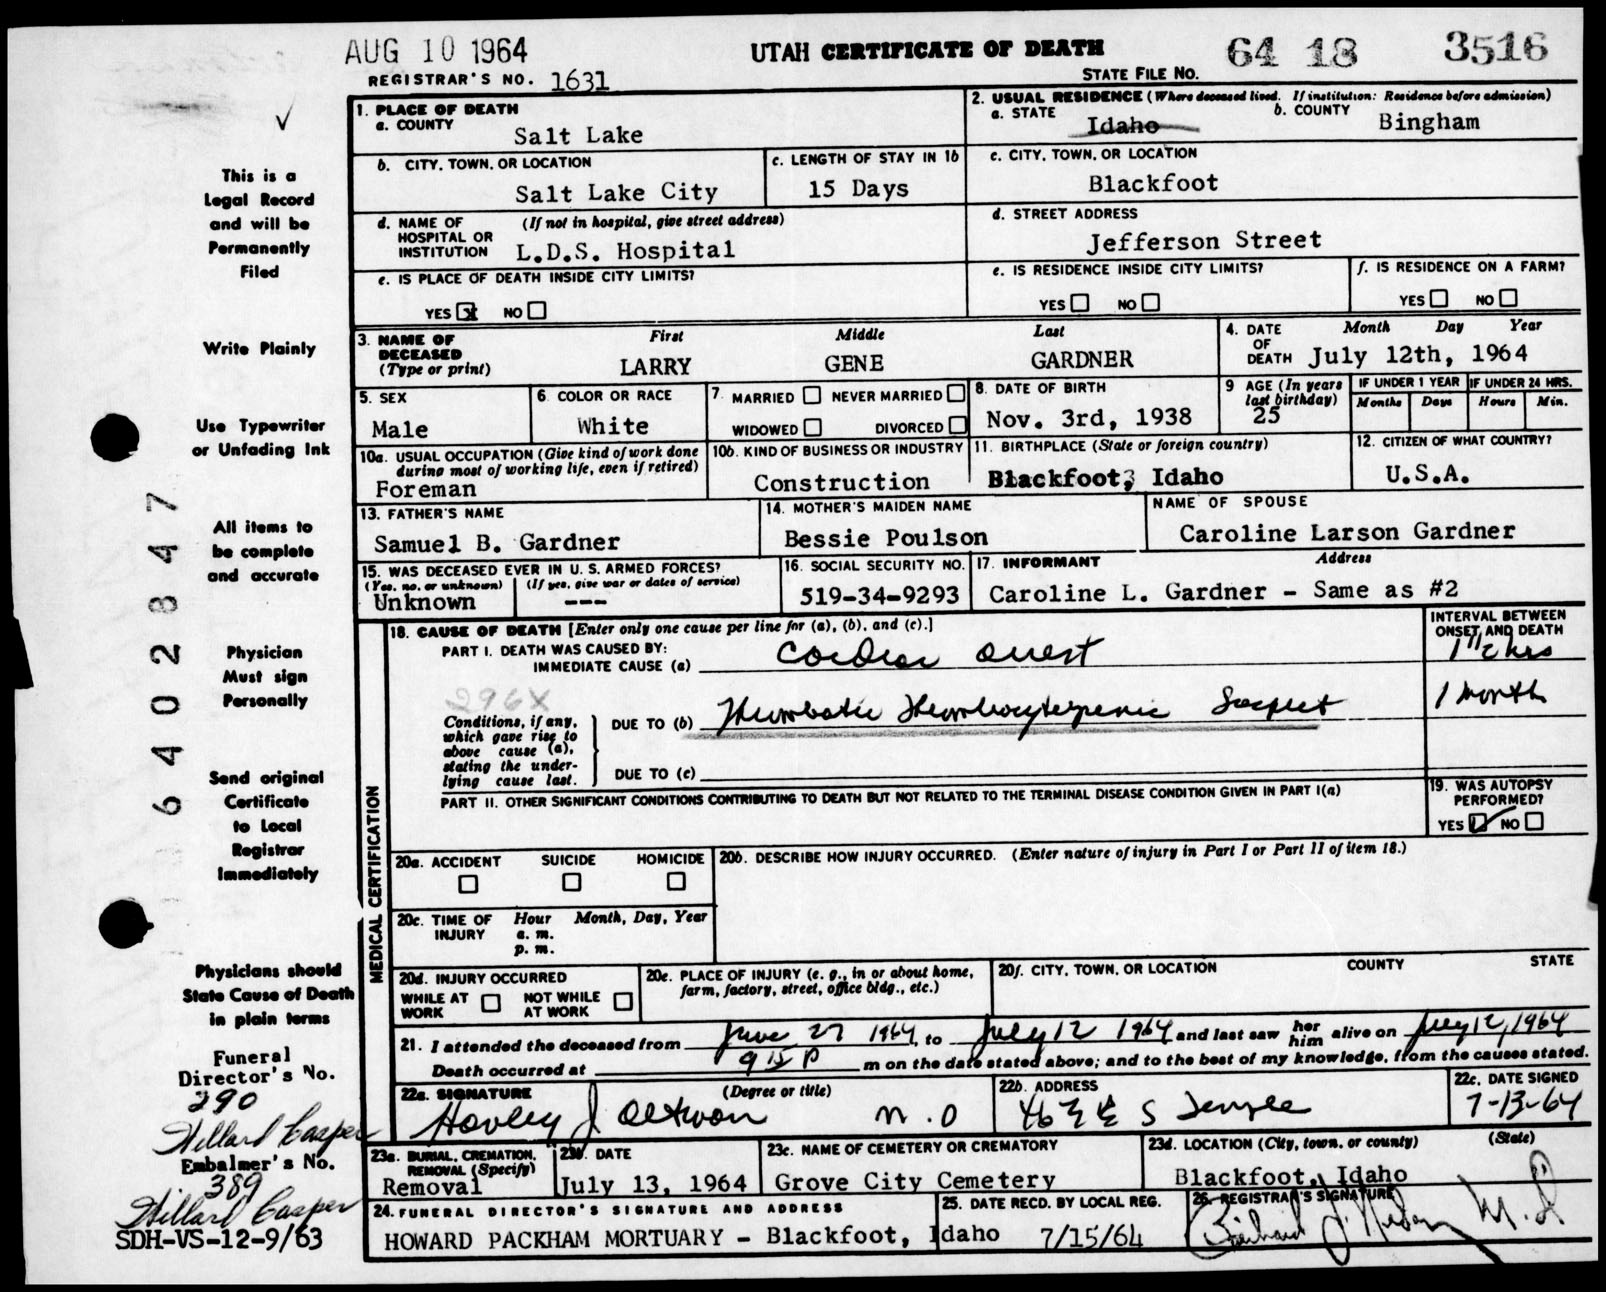 AUG 10 1964
UTAH CERTIFICATE OF DEATH
64 18 3516
REGISTRAR'S NO. 1631
STATE FILE NO.
1. PLACE OF DEATH
a. COUNTY
Salt Lake
2. USUAL RESIDENCE (Where deceased lived. If institution: Residence before admission)
a. STATE Idaho b. COUNTY Bingham
b. CITY, TOWN, OR LOCATION
Salt Lake City
c. LENGTH OF STAY IN 1b
15 Days
c. CITY, TOWN, OR LOCATION
Blackfoot
d. NAME OF HOSPITAL OR INSTITUTION (If not in hospital, give street address)
L.D.S. Hospital
d. STREET ADDRESS
Jefferson Street
e. IS PLACE OF DEATH INSIDE CITY LIMITS?
YES x NO
e. IS RESIDENCE INSIDE CITY LIMITS?
YES NO
f. IS RESIDENCE ON A FARM?
YES NO
3. NAME OF DECEASED (Type or print)
First Middle Last
LARRY GENE GARDNER
4. DATE OF DEATH Month Day Year
July 12th, 1964
5. SEX
Male
6. COLOR OR RACE
White
7. MARRIED NEVER MARRIED
WIDOWED DIVORCED
8. DATE OF BIRTH
Nov. 3rd, 1938
9 AGE (In years last birthday)
25
IF UNDER 1 YEAR
Months Days
IF UNDER 24 HRS.
Hours Min.
10a. USUAL OCCUPATION (Give kind of work done during most of working life, even if retired)
Foreman
10b. KIND OF BUSINESS OR INDUSTRY
Construction
11. BIRTHPLACE (State or foreign country)
Blackfoot, Idaho
12. CITIZEN OF WHAT COUNTRY?
U.S.A.
13. FATHER'S NAME
Samuel B. Gardner
14. MOTHER'S MAIDEN NAME
Bessie Poulson
NAME OF SPOUSE
Caroline Larson Gardner
15. WAS DECEASED EVER IN U. S. ARMED FORCES?
(Yes, no, or unknown) (If yes, give war or dates of service)
Unknown ---
16. SOCIAL SECURITY NO.
519-34-9293
17. INFORMANT Address
Caroline L. Gardner - Same as #2
MEDICAL CERTIFICATION
18. CAUSE OF DEATH [Enter only one cause per line for (a), (b), and (c).]
INTERVAL BETWEEN ONSET AND DEATH
PART I. DEATH WAS CAUSED BY:
IMMEDIATE CAUSE (a) Cardiac arrest
1 1/2 hrs
296X
Conditions, if any, which gave rise to above cause (a), stating the underlying cause last.
DUE TO (b) Thrombotic Thrombocytopenic Suspect
1 month
DUE TO (c)
PART II. OTHER SIGNIFICANT CONDITIONS CONTRIBUTING TO DEATH BUT NOT RELATED TO THE TERMINAL DISEASE CONDITION GIVEN IN PART I(a)
19. WAS AUTOPSY PERFORMED?
YES NO
20a. ACCIDENT SUICIDE HOMICIDE
20b. DESCRIBE HOW INJURY OCCURRED. (Enter nature of injury in Part I or Part II of item 18.)
20c. TIME OF INJURY Hour Month, Day, Year
a. m.
p. m.
20d. INJURY OCCURRED
WHILE AT WORK NOT WHILE AT WORK
20e. PLACE OF INJURY (e. g., in or about home, farm, factory, street, office bldg., etc.)
20f. CITY, TOWN, OR LOCATION COUNTY STATE
21. I attended the deceased from June 27 1964, to July 12 1964 and last saw her him alive on July 12, 1964
Death occurred at 9 15 P m on the date stated above; and to the best of my knowledge, from the causes stated.
22a. SIGNATURE (Degree or title)
J. M.D
22b. ADDRESS
S Temple
22c. DATE SIGNED
7-13-64
23a. BURIAL, CREMATION, REMOVAL (Specify)
Removal
23b. DATE
July 13, 1964
23c. NAME OF CEMETERY OR CREMATORY
Grove City Cemetery
23d. LOCATION (City, town, or county) (State)
Blackfoot, Idaho
24. FUNERAL DIRECTOR'S SIGNATURE AND ADDRESS
HOWARD PACKHAM MORTUARY - Blackfoot, Idaho
25. DATE RECD. BY LOCAL REG.
7/15/64
26. REGISTRAR'S SIGNATURE
M.D
This is a
Legal Record
and will be
Permanently
Filed
Write Plainly
Use Typewriter
or Unfading Ink
All items to
be complete
and accurate
Physician
Must sign
Personally
Send original
Certificate
to Local
Registrar
Immediately
Physicians should
State Cause of Death
in plain terms
Funeral
Director's No.
290
Hillard Casper
Embalmer's No.
389
Hillard Casper
SDH-VS-12-9/63
64028847